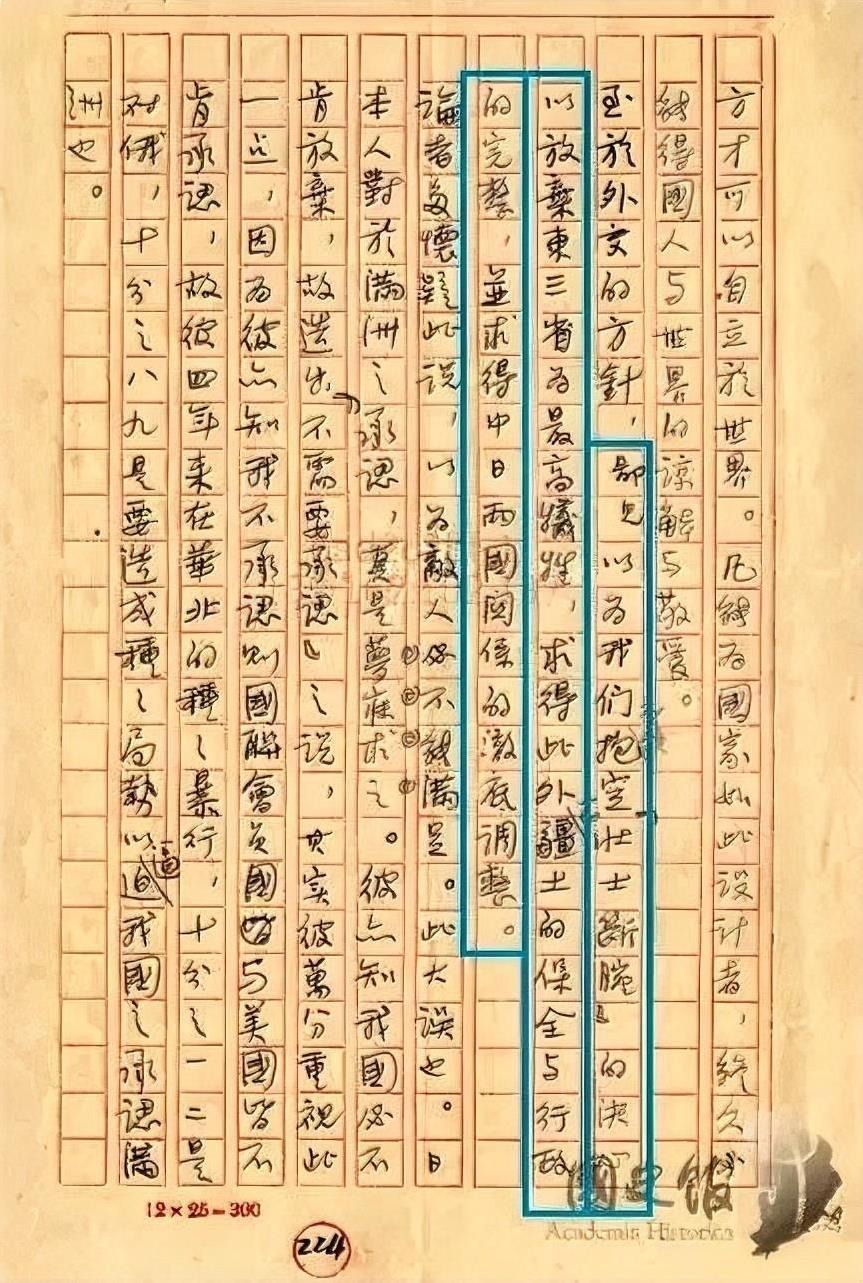 方才可以自立於世界。凡能为國家如此設计者，終久必
能得國人与世界的諒解与敬愛。
至於外交的方針，鄙见以为我们抱定壮士断腕』的决心
以放棄東三省为最高犧牲，求得此外疆土的保全与行政
的完整，並求得中日两國関係的澈底调整。
論者多懷疑此说，以为敵人必不能满足。此大误也。日
本人對於满洲之承認，真是夢寐求之。彼亦知我國必不
肯放棄，故造出不需要承認』之说，其实彼萬分重視此
一点，因为彼亦知我不承認则國聯會员國皆与美國皆不
肯承認，故彼四年来在華北的種々暴行，十分之一二是
对俄，十分之八九是要造成種々局勢以逼我國之承認满
洲也。
12×25=300
224
國史館
Academia Historica